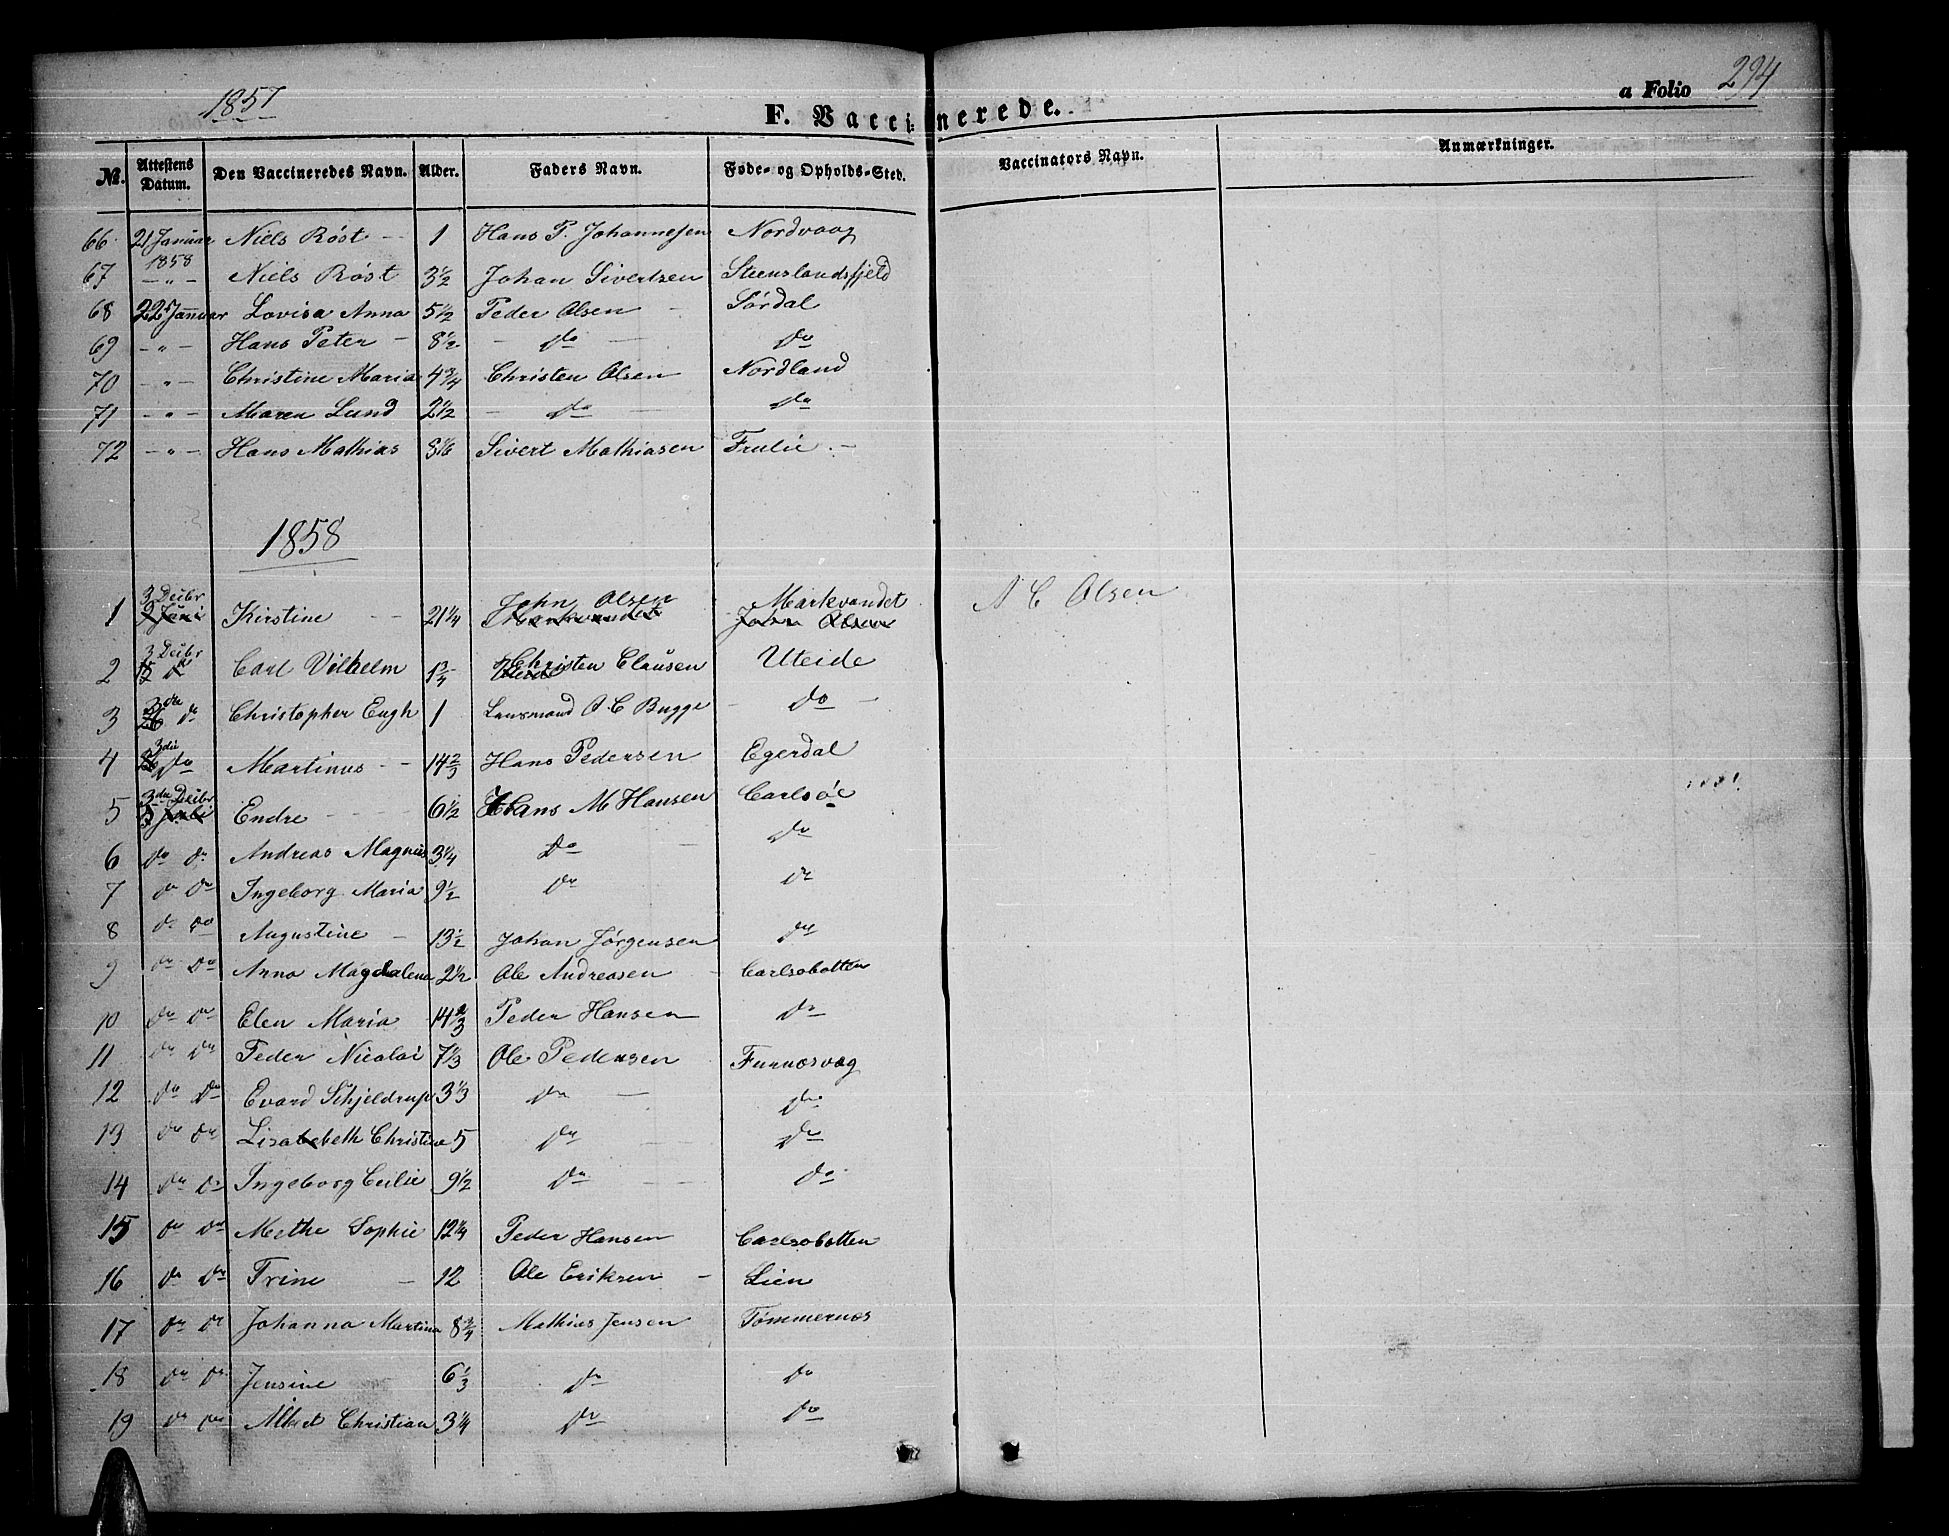 1857
F. Vaccinerede.
a Folio 294
Nr. Attestens Datum. Den Vaccineredes Navn. Alder. Faders Navn. Føde- og Opholds-Sted. Vaccinators Navn. Anmærkninger.
66 21 Januar 1858 Niels Röst - 1 Hans P. Johannesen Nordvaag
67 - " - Niels Röst 3 1/2 Johan Sivertsen Steenslandsfjeld
68 22 Januar Lovisa Anna 5 1/2 Peder Olsen - Sördal
69 - " - Hans Peter - 8 1/2 - do - do
70 - " - Christine Maria 4 3/4 Christen Olsen Nordland
71 - " - Maren Lund 2 1/2 - do - do
72 - " - Hans Mathias 8 1/6 Sivert Mathiasen Frulie -
1858
1 3 Decbr 2 Juni Kirstine - - 21 1/4 John Olsen Markvandet A C Olsen
Markvandet John Olsen
2 3 Decbr 15 do Carl Vilhelm 1 3/4 Christen Clausen Uteide
3 3 die 26 do Christopher Eugh 1 Lensmand O. C Bugge - do -
4 3 die 26 do Martinus - - 14 2/3 Hans Pedersen Egerdal
5 3 die Decbr 5 Juli Endre - - - 6 1/2 Hans M Hansen Carlsöe
6 do do Andreas Magnus 3 1/4 Do - do
7 do do Ingeborg Maria 9 1/2 do do
8 do do Augustine - 13 1/2 Johan Jörgensen do
9 do do Anna Magdalena 2 1/2 Ole Andreasen - Carlsobotten
10 do do Elen Maria 14 2/3 Peder Hansen do
11 do do Peder Nicolai 7 1/3 Ole Pedersen Furnæsvag
12 do do Evard Schjeldrup 3 1/3 do - do
13 do do Lisabeth Christine 5 do - do
14 do do Ingeborg Cecilie 9 1/2 do - do
15 do do Methe Sophie 12 1/4 Peder Hansen Carlsobotten
16 do do Trine - 12 Ole Eriksen - Lien
17 do do Johanna Martina 8 3/4 Mathias Jensen Tömmernæs
18 do do Jensine 6 1/3 do do
19 do do Albert Christian 3 1/4 do do